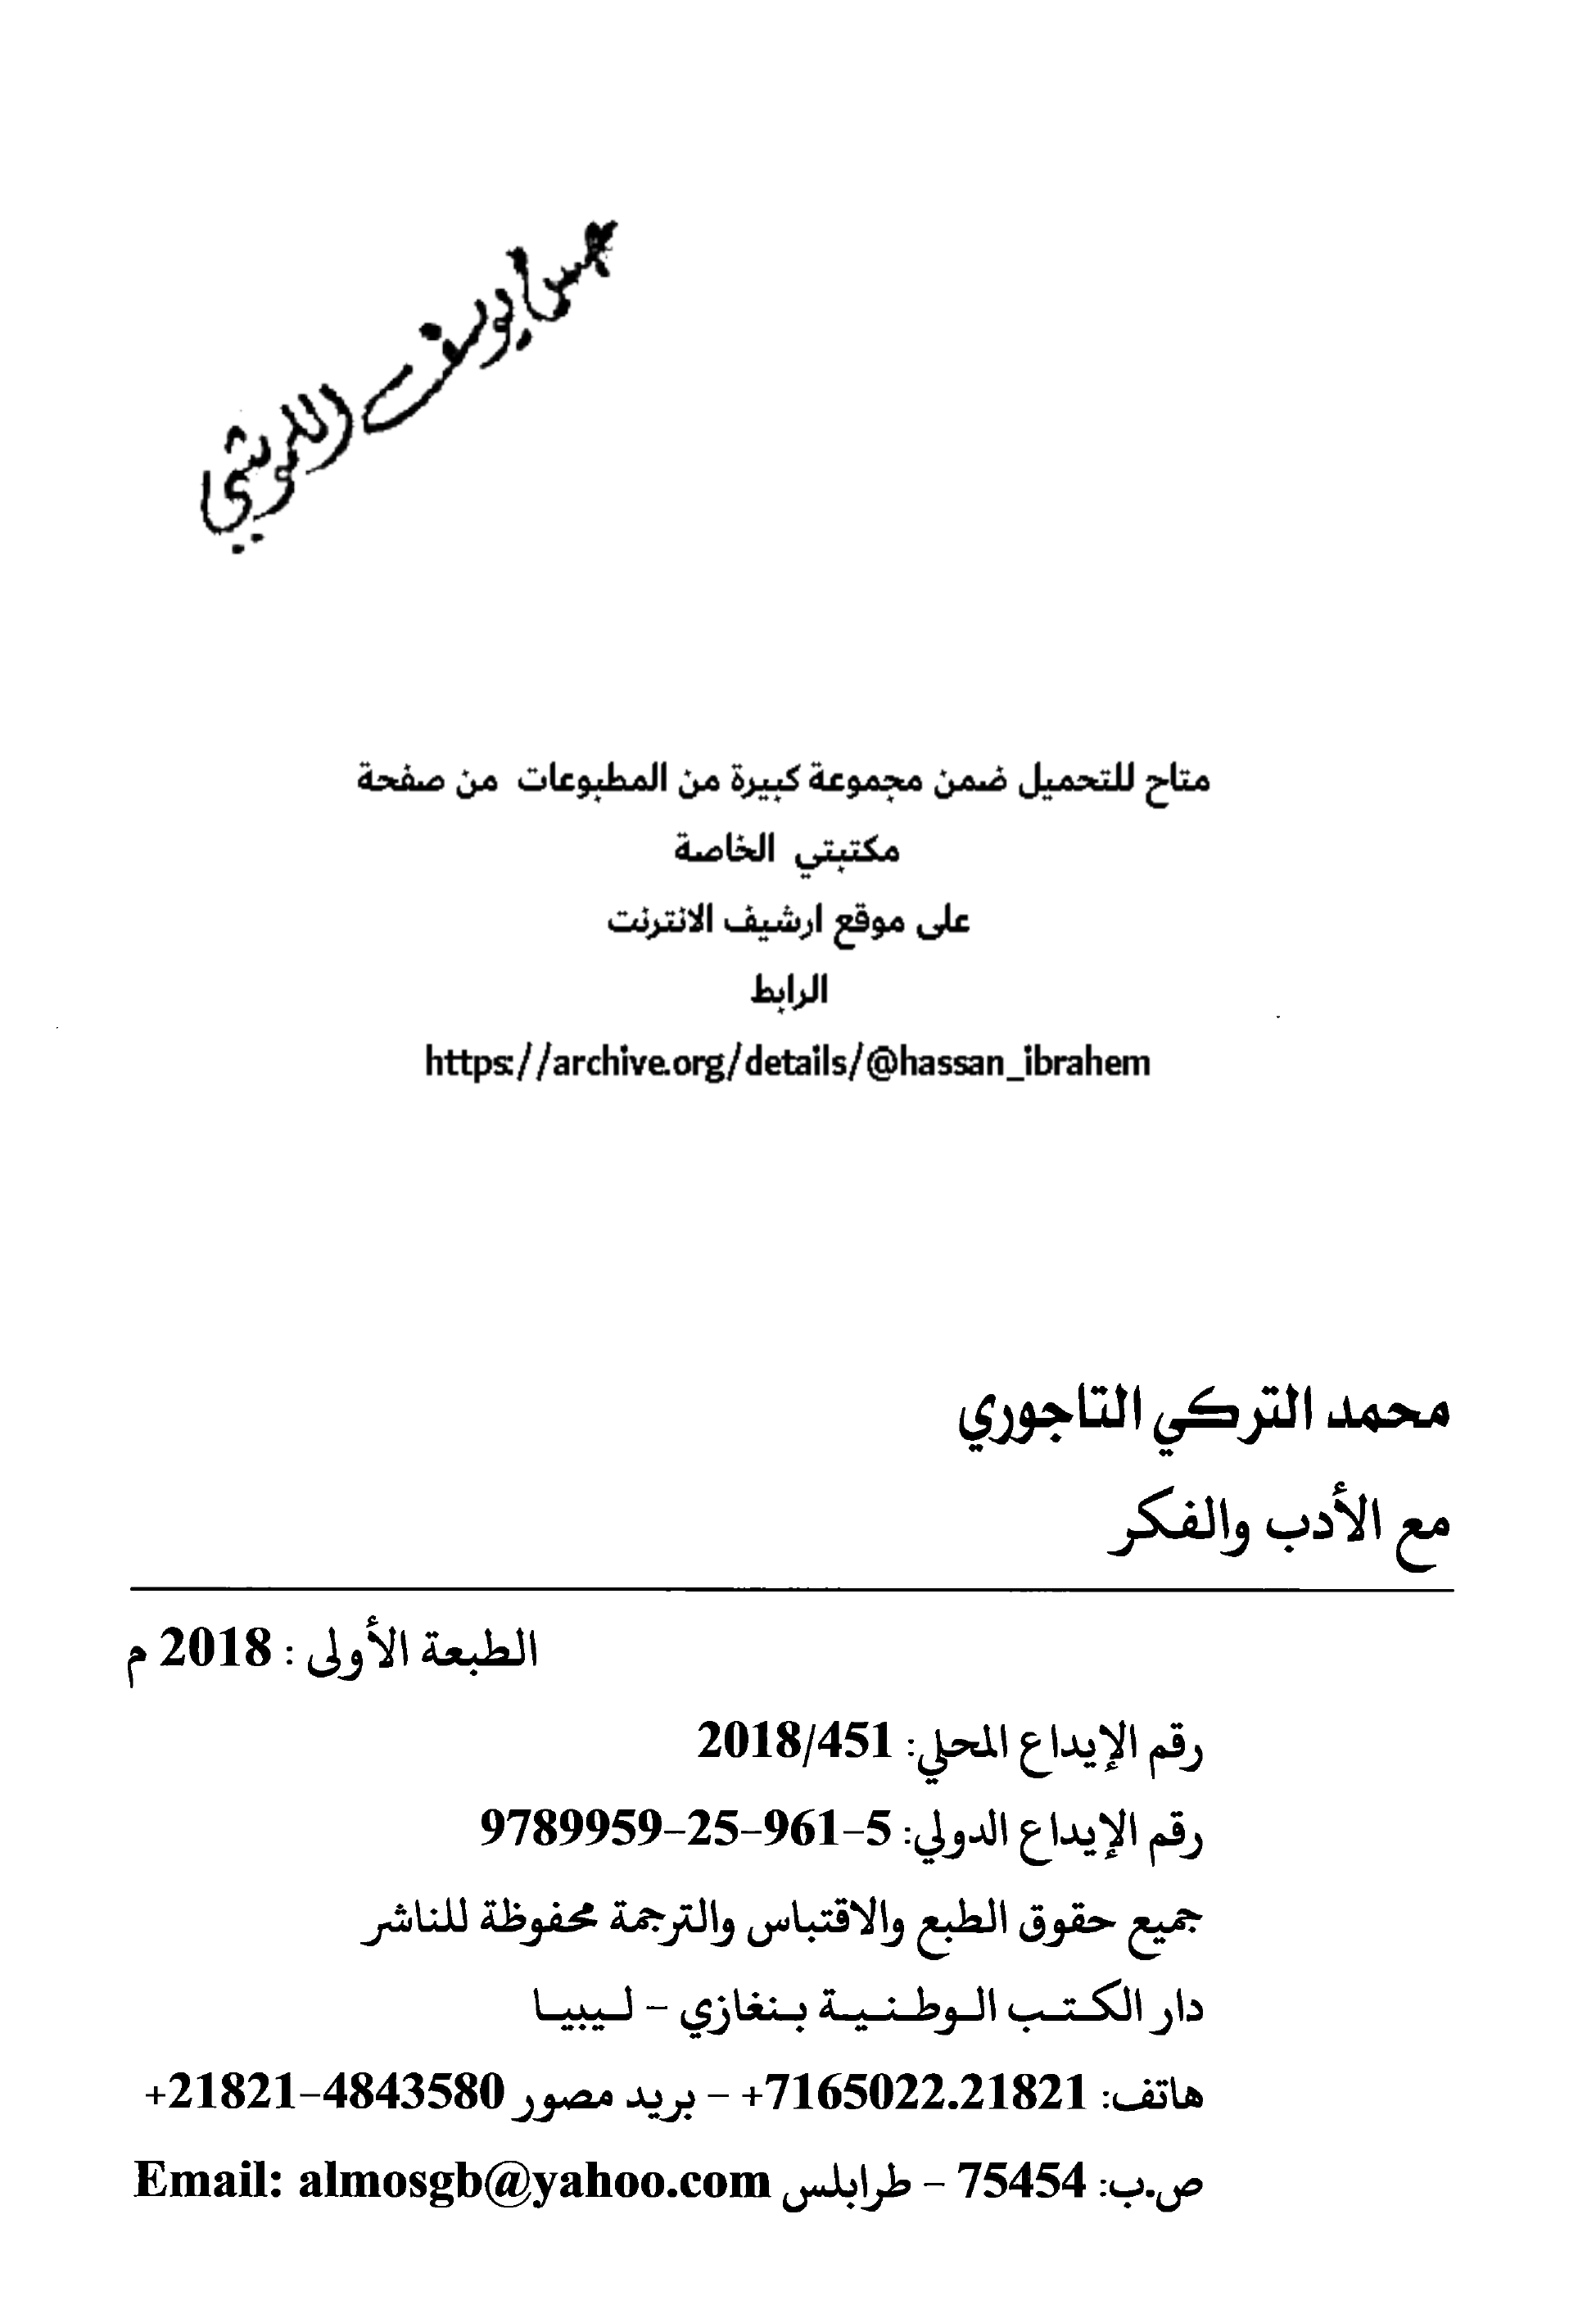 متاح للتحميل ضمن مجموعة كبيرة من المطبوعات من صفحة
مكتبتي الخاصة
على موقع ارشيف الانترنت
الرابط
https://archive.org/details/@hassan_ibrahem
محمد التركي التاجوري
مع الأدب والفكر
الطبعة الأولى : 2018 م
رقم الإيداع المحلي: 2018/451
رقم الإيداع الدولي: 9789959-25-961-5
جميع حقوق الطبع والاقتباس والترجمة محفوظة للناشر
دار الكتب الوطنية بنغازي - ليبيا
هاتف: 7165022.21821+ - بريد مصور 4843580-21821+
ص.ب: 75454 - طرابلس Email: almosgb@yahoo.com